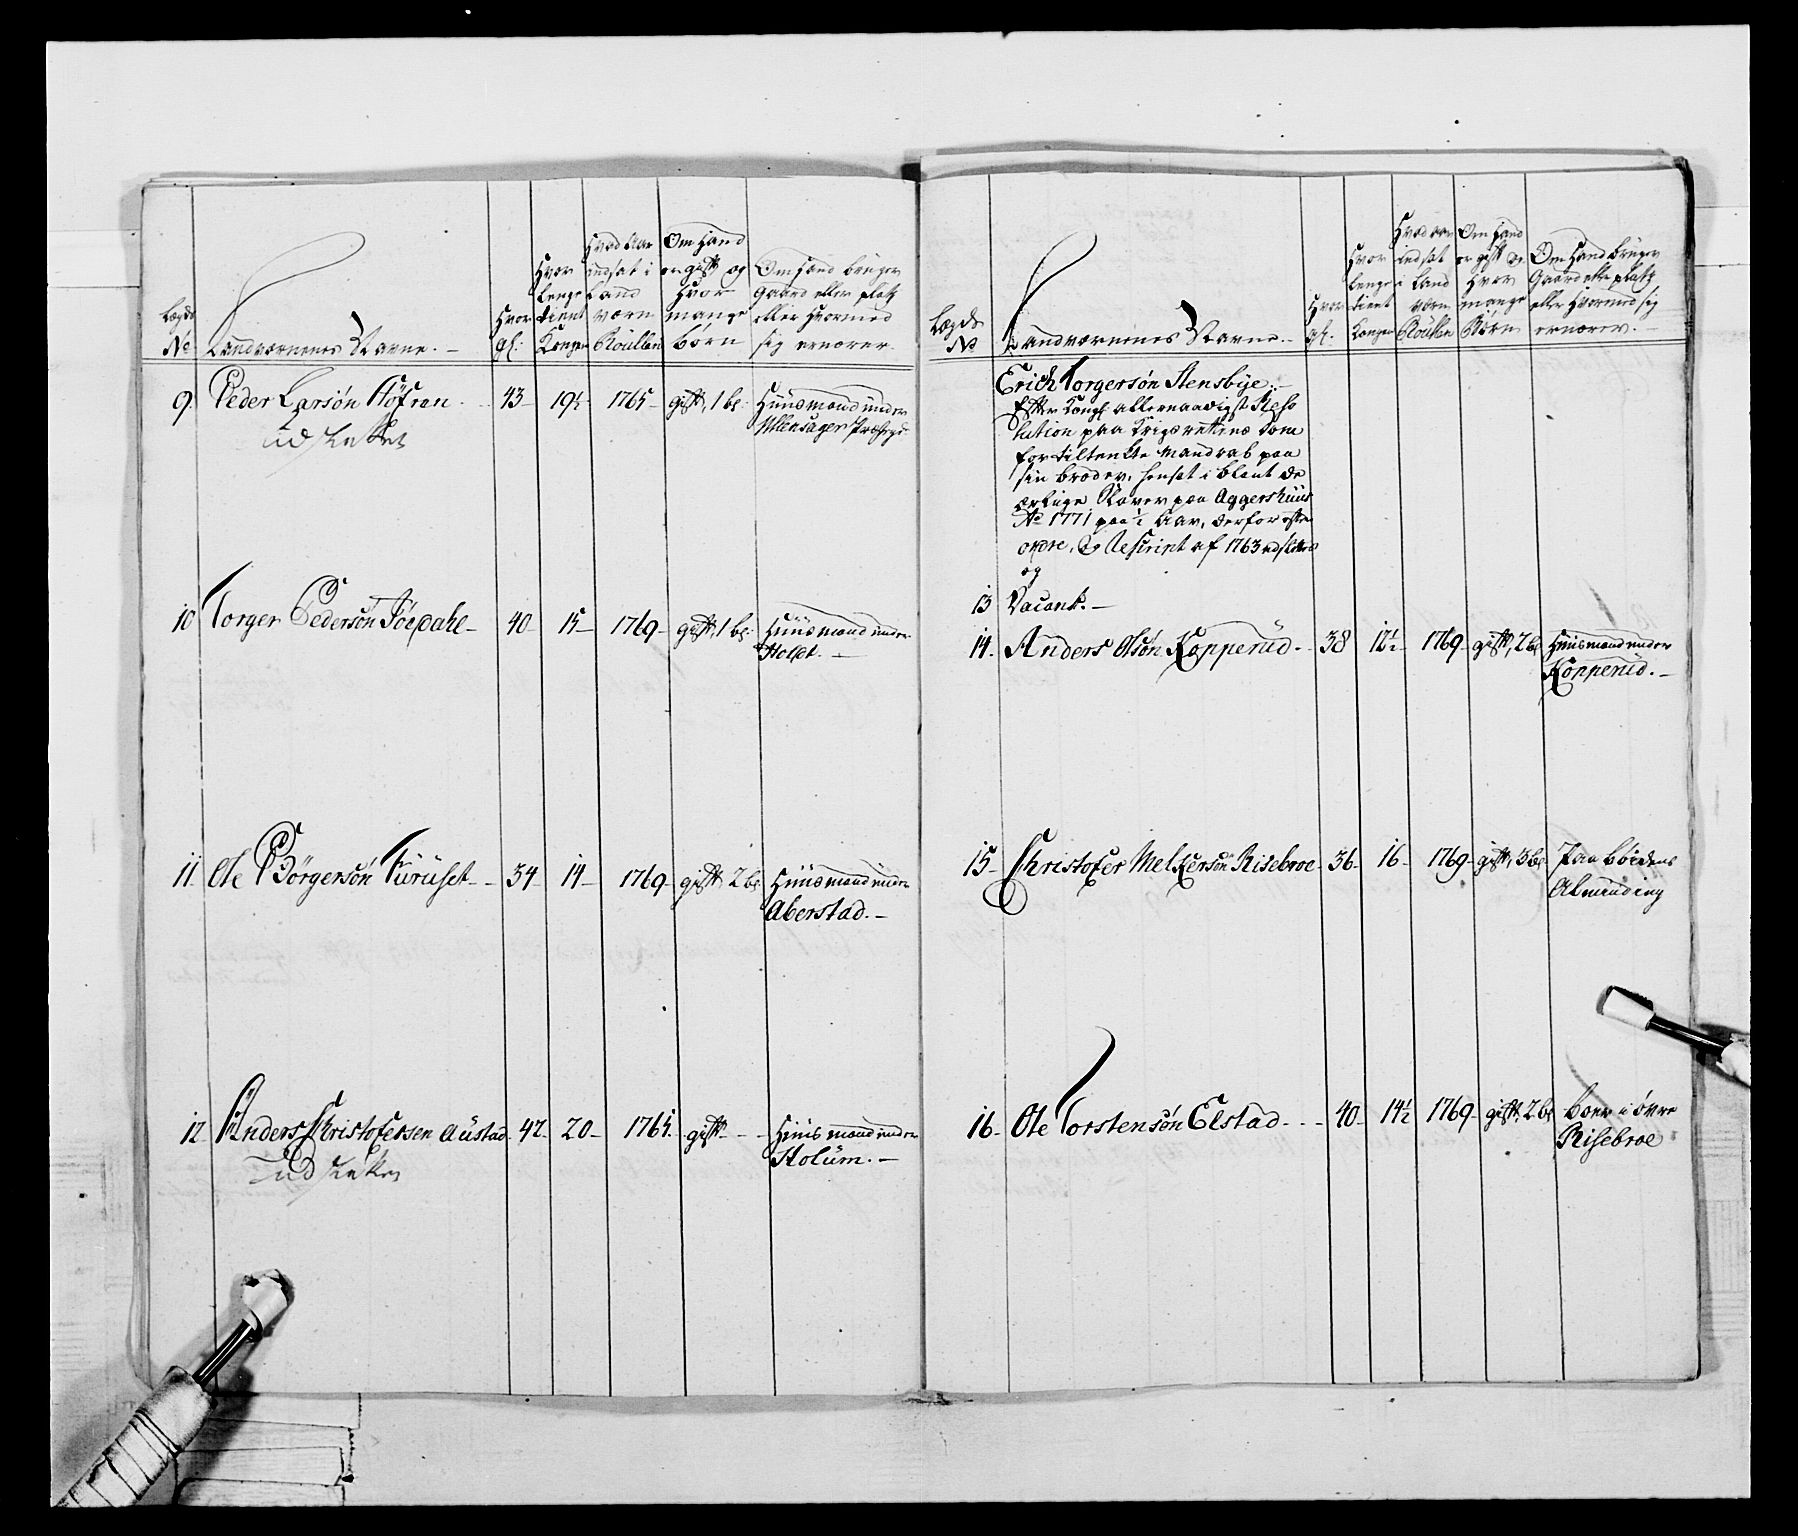 Lægds
No
Landværnenes Navne.
Hvor
gl:
Hvor
længe
tient
Kongen
Hvad Aar
indsat i
Land
værn
Roullen
Om Hand
er gift og
Hvor
mange
børn
Om Hand bruger
Gaard eller platz
eller Hvormed
sig ernærer.
9. Peder Larsön Höfren. 43 19½ 1765 gift, 1 bn: Huusmand under
Ullensager Præstegd:
udslettet
10 Torger Pedersön 40 15 1769 gift, 1 bn: Huusmand under
Holdt.
11. Ole Börgersön Furuset 34 14 1769 gift 2 bn Huusmand under
Aberstad.
12 Anders Christofersen Austad 42 20 1765. gift Huusmand under
Holum.
udslettet
Lægds
No
Landværnenes Navne.
Hvor
gl:
Hvor
længe
tient
Kongen
Hvad aar
indsat
i Land
værn
Roullen
Om Hand
er gift og
Hvor
mange
Börn
Om Hand bruger
Gaard eller platz
eller Hvormed sig
ernærer.
Erich Torgersön Stensbye.
Efter Kongl allernaadigst Reso
lution paa Krigsrettens Dom
for tiltenkte Mandrab paa
sin broder, hensat i blant de
ærlige Slaver paa Aggershuus
Ao 1771 paa ½ Aar, derfor efter
ordre, og Rescript af 1763 udslettes
og
13 Vacant.
14. Anders Olsön Kopperud. 38 12½ 1769 gift, 2 bn Huusmand under
Kopperud.
15 Christofer Melkersön Risebroe 36. 16 1769 gift, 3 bn Paa böidens
Almending
16. Ole Torstensön Elstad. 40 14½ 1769 gift, 2 bn boer i övre
Risebroe